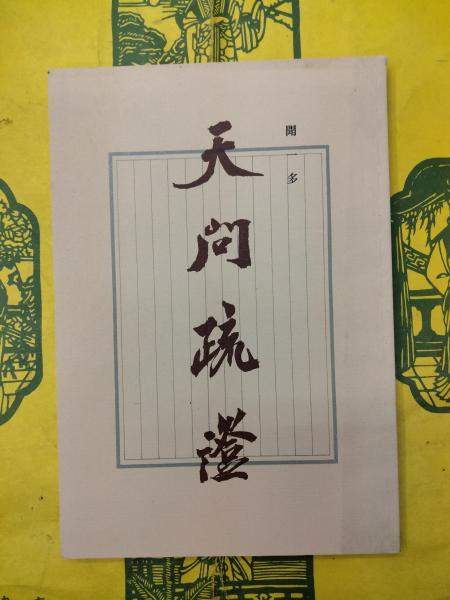 聞一多
天问疏證